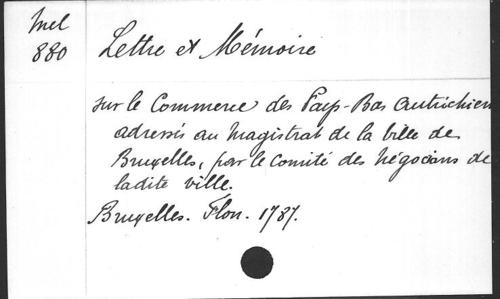 Mel
880
Lettre et Mémoire
sur le Commerce des Pays-Bas autrichiens
adressés au Magistrat de la Ville de
Bruxelles, par le Comité des Négocians de
ladite ville.
Bruxelles. Flon. 1787.